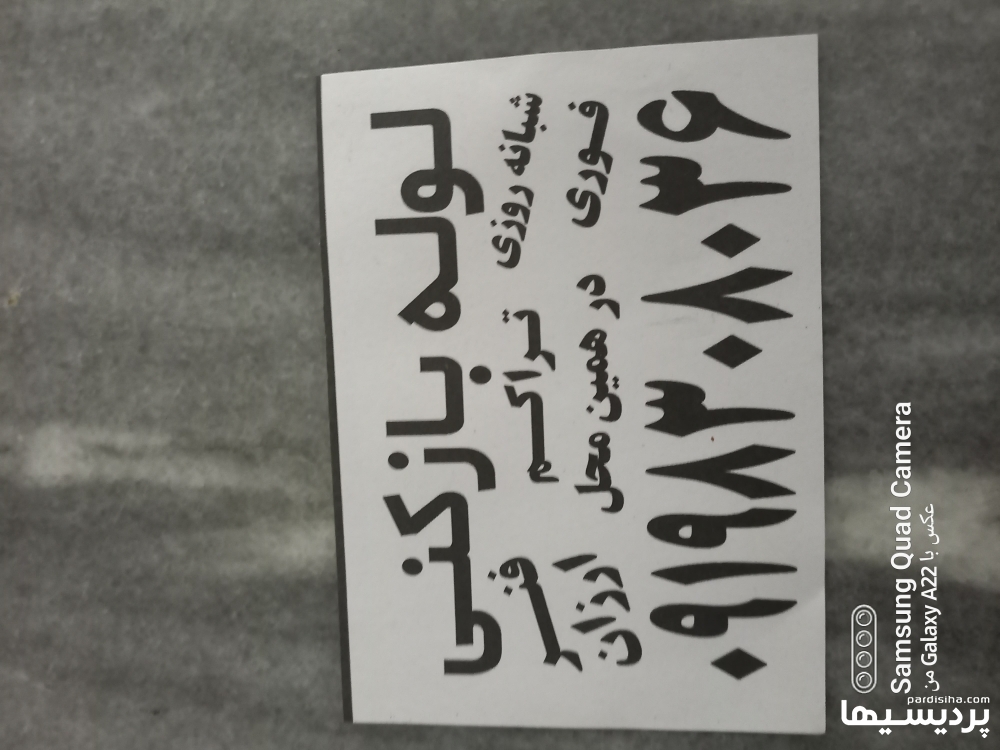 لوله بازکنی
شبانه روزی تراکم فنر
فوری در همین محل ارزان
۰۹۱۹۸۳۰۸۰۳۶
Samsung Quad Camera
عکس با Galaxy A22 من
pardisiha.com
پردیسیها